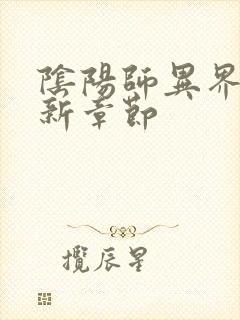 陰陽師異界
新章節
攬辰星